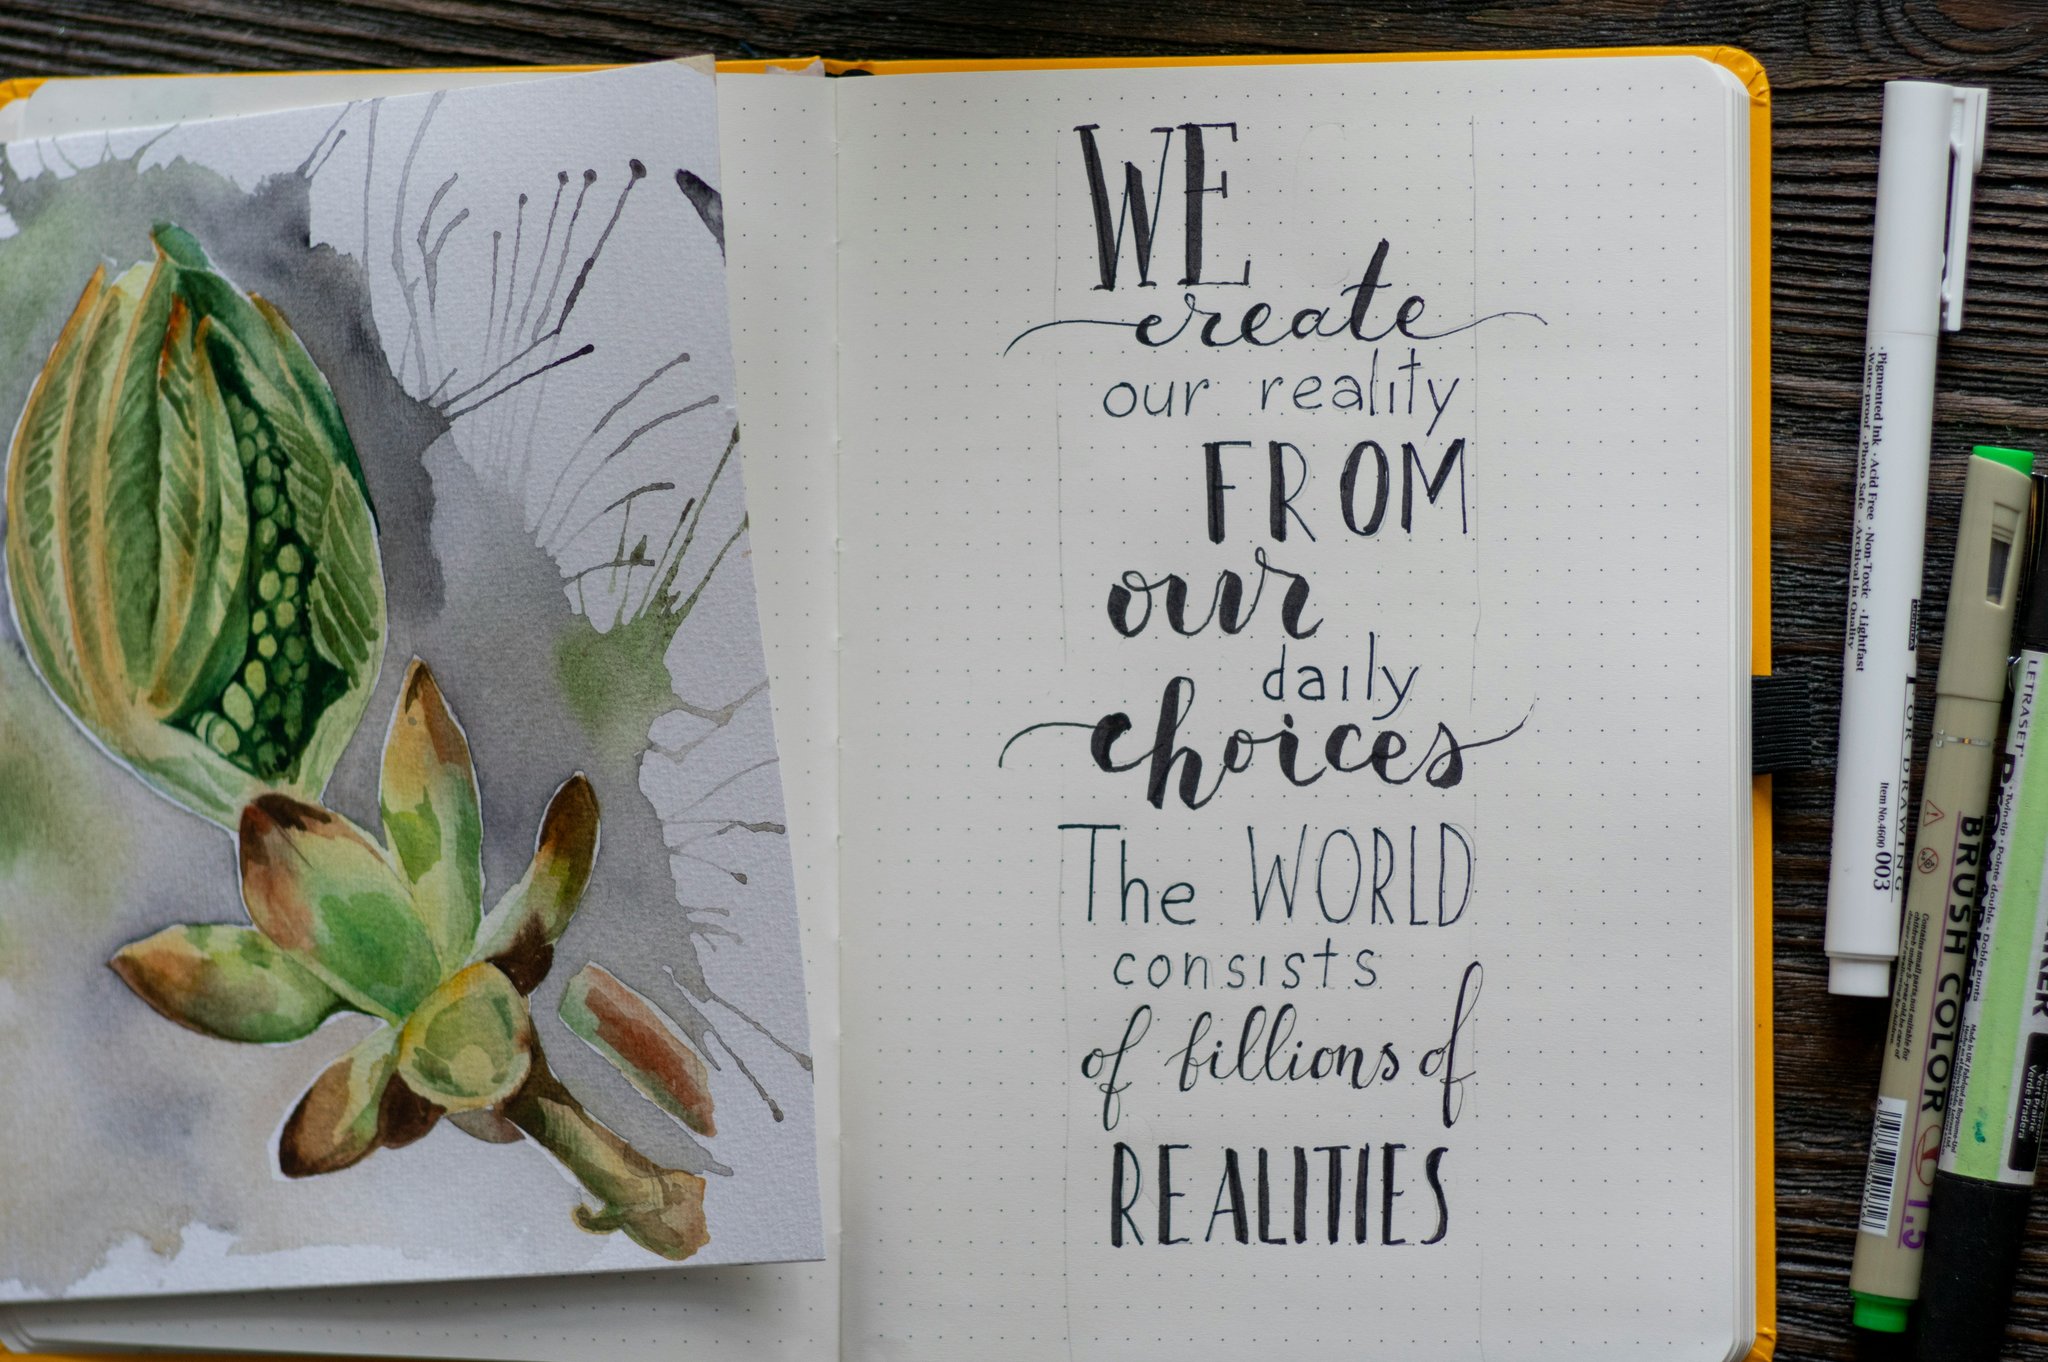 WE
create
our reality
FROM
our
daily
choices
The WORLD
consists
of billions of
REALITIES
· Pigmented Ink · Acid Free · Non-Toxic · Lightfast
water-proof · Photo Safe · Archival in Quality
FOR DRAWING
Item No.4600 003
BRUSH COLOR
1.5
LETRASET
Twin-tip · Pointe double · Doble punta
Vert Prairie
Verde Pradera